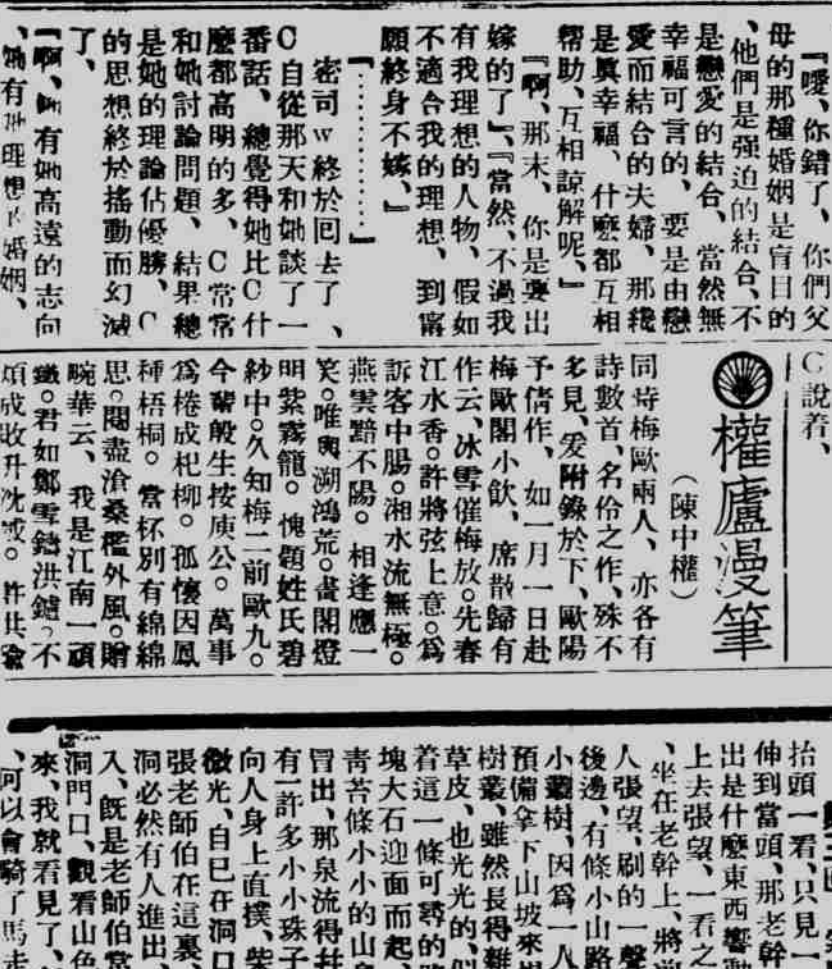 『噯、你錯了、你們父
母的那種婚姻是盲目的
、他們是强迫的結合、不
是戀愛的結合、當然無
幸福可言的、要是由戀
愛而結合的夫婦、那纔
是眞幸福、什麽都互相
帮助、互相諒解呢、』
『啊、那末、你是要出
嫁的了』、『當然、不過我
有我理想的人物、假如
不適合我的理想、到寗
願終身不嫁、』
『…………』
密司w終於回去了、
C自從那天和她談了一
番話、總覺得她比C什
麽都高明的多、C常常
和她討論問題、結果總
是她的理論佔優勝、C
的思想終於搖動而幻滅
了、
『啊、她有她高遠的志向
、她有她理想的婚姻、
C說着、
權廬漫筆
（陳中權）
同時梅歐兩人、亦各有
詩數首、名伶之作、殊不
多見、爰附錄於下、歐陽
予倩作、如一月一日赴
梅歐閣小飲、席散歸有
作云、冰雪催梅放。先春
江水香。許將弦上意。爲
訴客中腸。湘水流無極。
燕雲黯不陽。相逢應一
笑。唯與溯鴻荒。畫閣燈
明紫霧籠。愧題姓氏碧
紗中。久知梅二前歐九。
今輩般生按庚公。萬事
爲棬成杞柳。孤懷因鳳
種梧桐。當杯別有綿綿
思。閱盡滄桑檻外風。贈
畹華云、我是江南一頑
鐵。君如鄭雪鑄洪鑪。不
煩成敗升沈感。許共
抬頭一看、只見一
伸到當頭、那老幹
出是什麽東西響動
上去張望、一看之
、坐在老幹上、將
人張望、刷的一聲
後邊、有條小山路
小叢樹、因爲一人
預備拿下山坡來
樹叢、雖然長得雜
草皮、也光光的、似
着這一條可尋的
塊大石迎面而起、
靑苔條小小的山
冒出、那泉流得
有一許多小小珠子
向人身上直撲、柴
微光、自已在洞口
張老師伯在這裏、
洞必然有人進出、
入、旣是老師伯當
洞門口、觀看山色
來、我就看見了、
、何以會騎了馬走